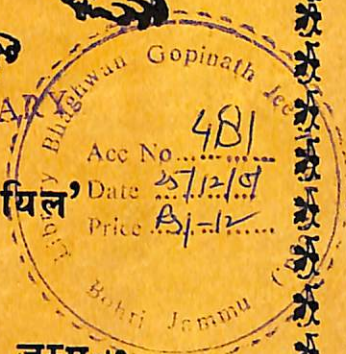 Library Bhaghwan Gopinath Jee
ARY
Acc No......481
यिल'
Date 25/12/01
Price
Bohri Jammu